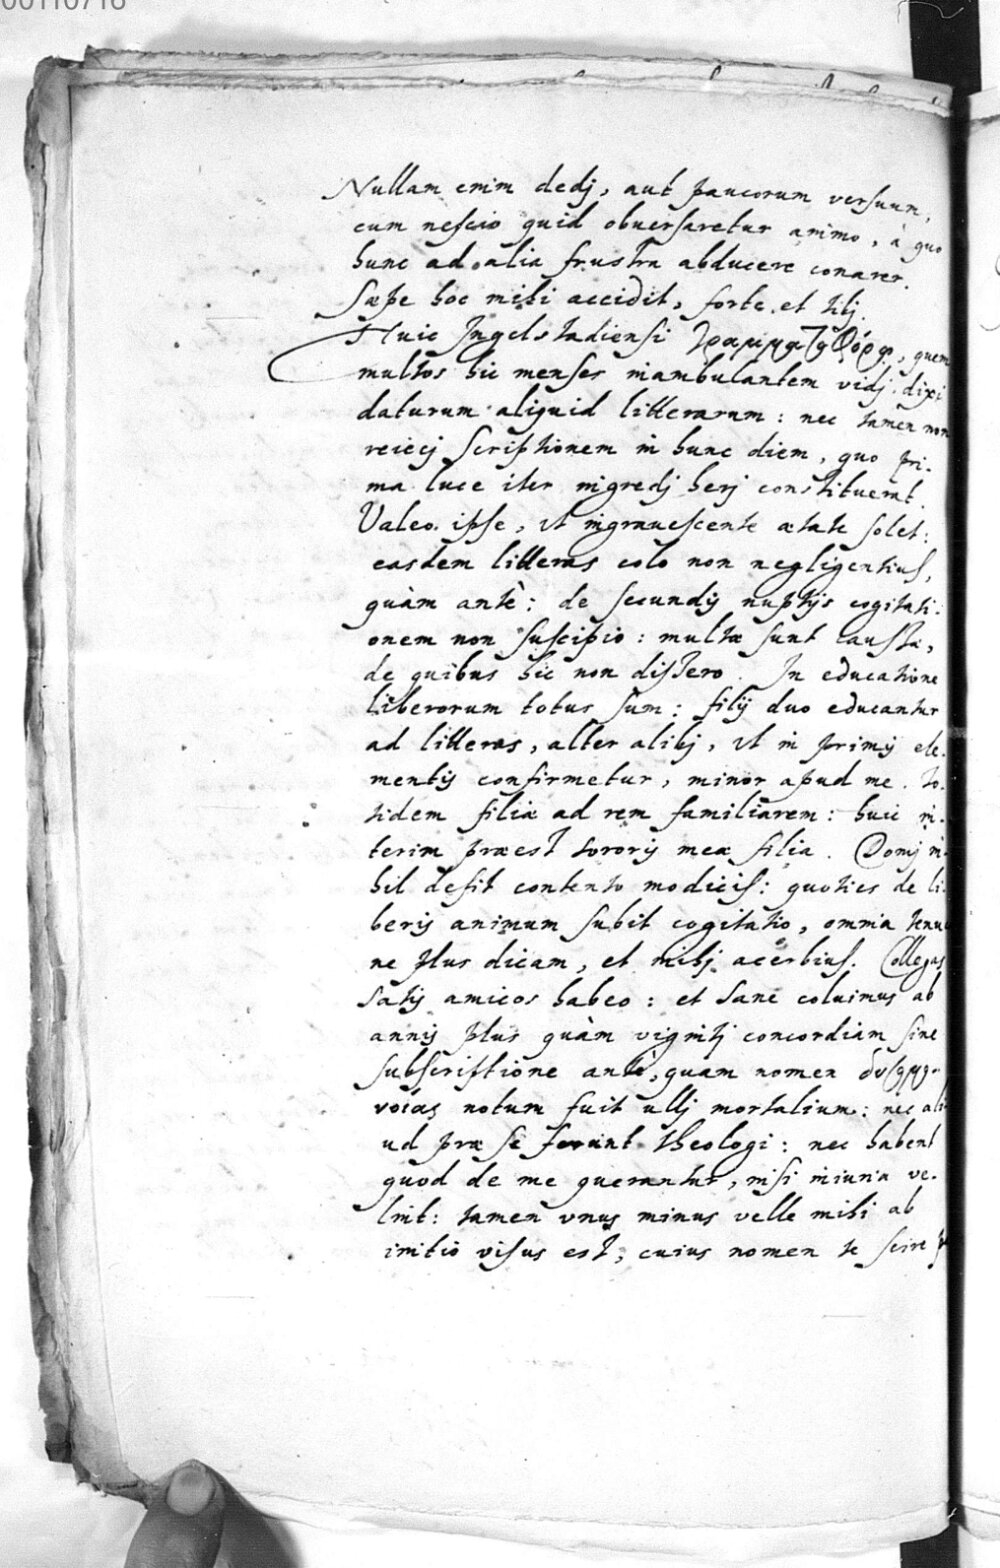 00110716
Nullam enim dedj, aut paucorum versuum,
cum nescio quid obuersaretur animo, à quo
hunc ad alia frustra abducere conarer.
Sæpe hoc mihi accidit, forte et tibj.
Huic Ingolstadiensi γραμματοφόρῳ, quem
multos hic menses inambulantem vidj, dixi
daturum aliquid litterarum: nec tamen non
reiecj scriptionem in hunc diem, quo pri-
ma luce iter ingredj herj constituerat.
Valeo ipse, vt ingrauescente ætate solet:
easdem litteras colo non negligentius,
quàm antè: de secundis nuptijs cogitati-
onem non suscipio: multæ sunt caussæ,
de quibus hic non dissero. In educatione
liberorum totus sum: filij duo educantur
ad litteras, alter alibj, vt in primis ele-
mentis confirmetur, minor apud me. to-
tidem filiæ ad rem familiarem: huic in-
terim præest sororis meæ filia. Domj ni-
hil desit contento modicis: quoties de li-
beris animum subit cogitatio, omnia tenui
ne plus dicam, et mihj acerbius. Collegas
satis amicos habeo: et sane coluimus ab
annis plus quàm vigintj concordiam sine
subscriptione antè, quam nomen
notum fuit ullj mortalium: nec ali
ud præ se ferunt theologi: nec habent
quod de me querantur, nisi iniuria ve-
lint: tamen vnus minus velle mihi ab
initio visus est, cuius nomen te scire